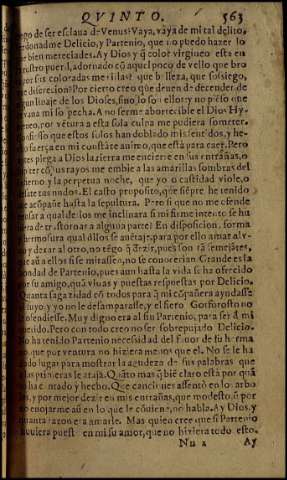 QVINTO. 563
go de ser esclaua de Venus? Vaya, vaya de mi tal delito,
donadme Delicio, y Partenio, que no puedo hazer lo
bien mereciades. Ay Dios y q̃ color virgineo esta en
rostro puest', adornado cũ aquel poco de vello que bro
coloradas mexillas? que belleza, que sossiego,
discrecion? Por cierto creo que deuen de decender de
linaje de los Dioses, sino lo son ellos: y no preo que
mi sospecha. A no serme aborrecible el Dio Hy
neo, por vẽtura a esta sola culpa me pudiera someter.
que estos solos han doblado mis sentidos, y he
fuerça en mi constãte animo, que està para caer. Pero
plega a Dios la tierra me encierre en sus entrañas, o
cõ sus rayos me embie a las amarillas sombras del
y la perpetua noche, que yo o castidad viole, o
tus nudos. El casto proposito, que siẽpre he tenido
acõpañe hasta la sepultura. Pero si que no me ofende
a qual de los me inclinara si mi firme intento se hu
de trastornar a alguna parte? En disposicion, forma
hermosura qual dellos se auẽtaje: para por ello amar al v
y dexar al otro, no tẽgo q̃ dezir, pues son tã semejãtes,
aũ a ellos si se mirassen, no se conocerian. Grande es la
bondad de Partenio, pues aun hasta la vida se ha ofrecido
su amigo, quã viuas y puestas respuestas por Delicio.
Quanta sagazidad cõ todos para q̃ mi cõpañera ayudasse
suyo, y yo no le desamparasse, y el fiero Gorforosto no
ofendiesse. Muy digno era al fiu Partenio, para ser d̃ mi
querido. Pero con todo creo no ser sobrepujado Delicio.
No ha tenido Partenio necessidad del fauor de su herma
que por ventura no hiziera menos que el. No se le ha
dado lugar para mostrar la agudeza de sus palabras que
las primeras le ataja. Quãto mas q̃ biẽ claro està por quã
ha cantado y hecho. Que canciones assentò en los arbo
y por mejor dezir en mis entrañas, que modesto, q̃ por
no enojarme aũ en lo que le cõuiene, no habla. Ay Dios, y
quanta razon era amarle. Mas quien cree que si Partenio
huuiera puest en mi su amor, que no hiziera todo esto.
Nn 2 Ay